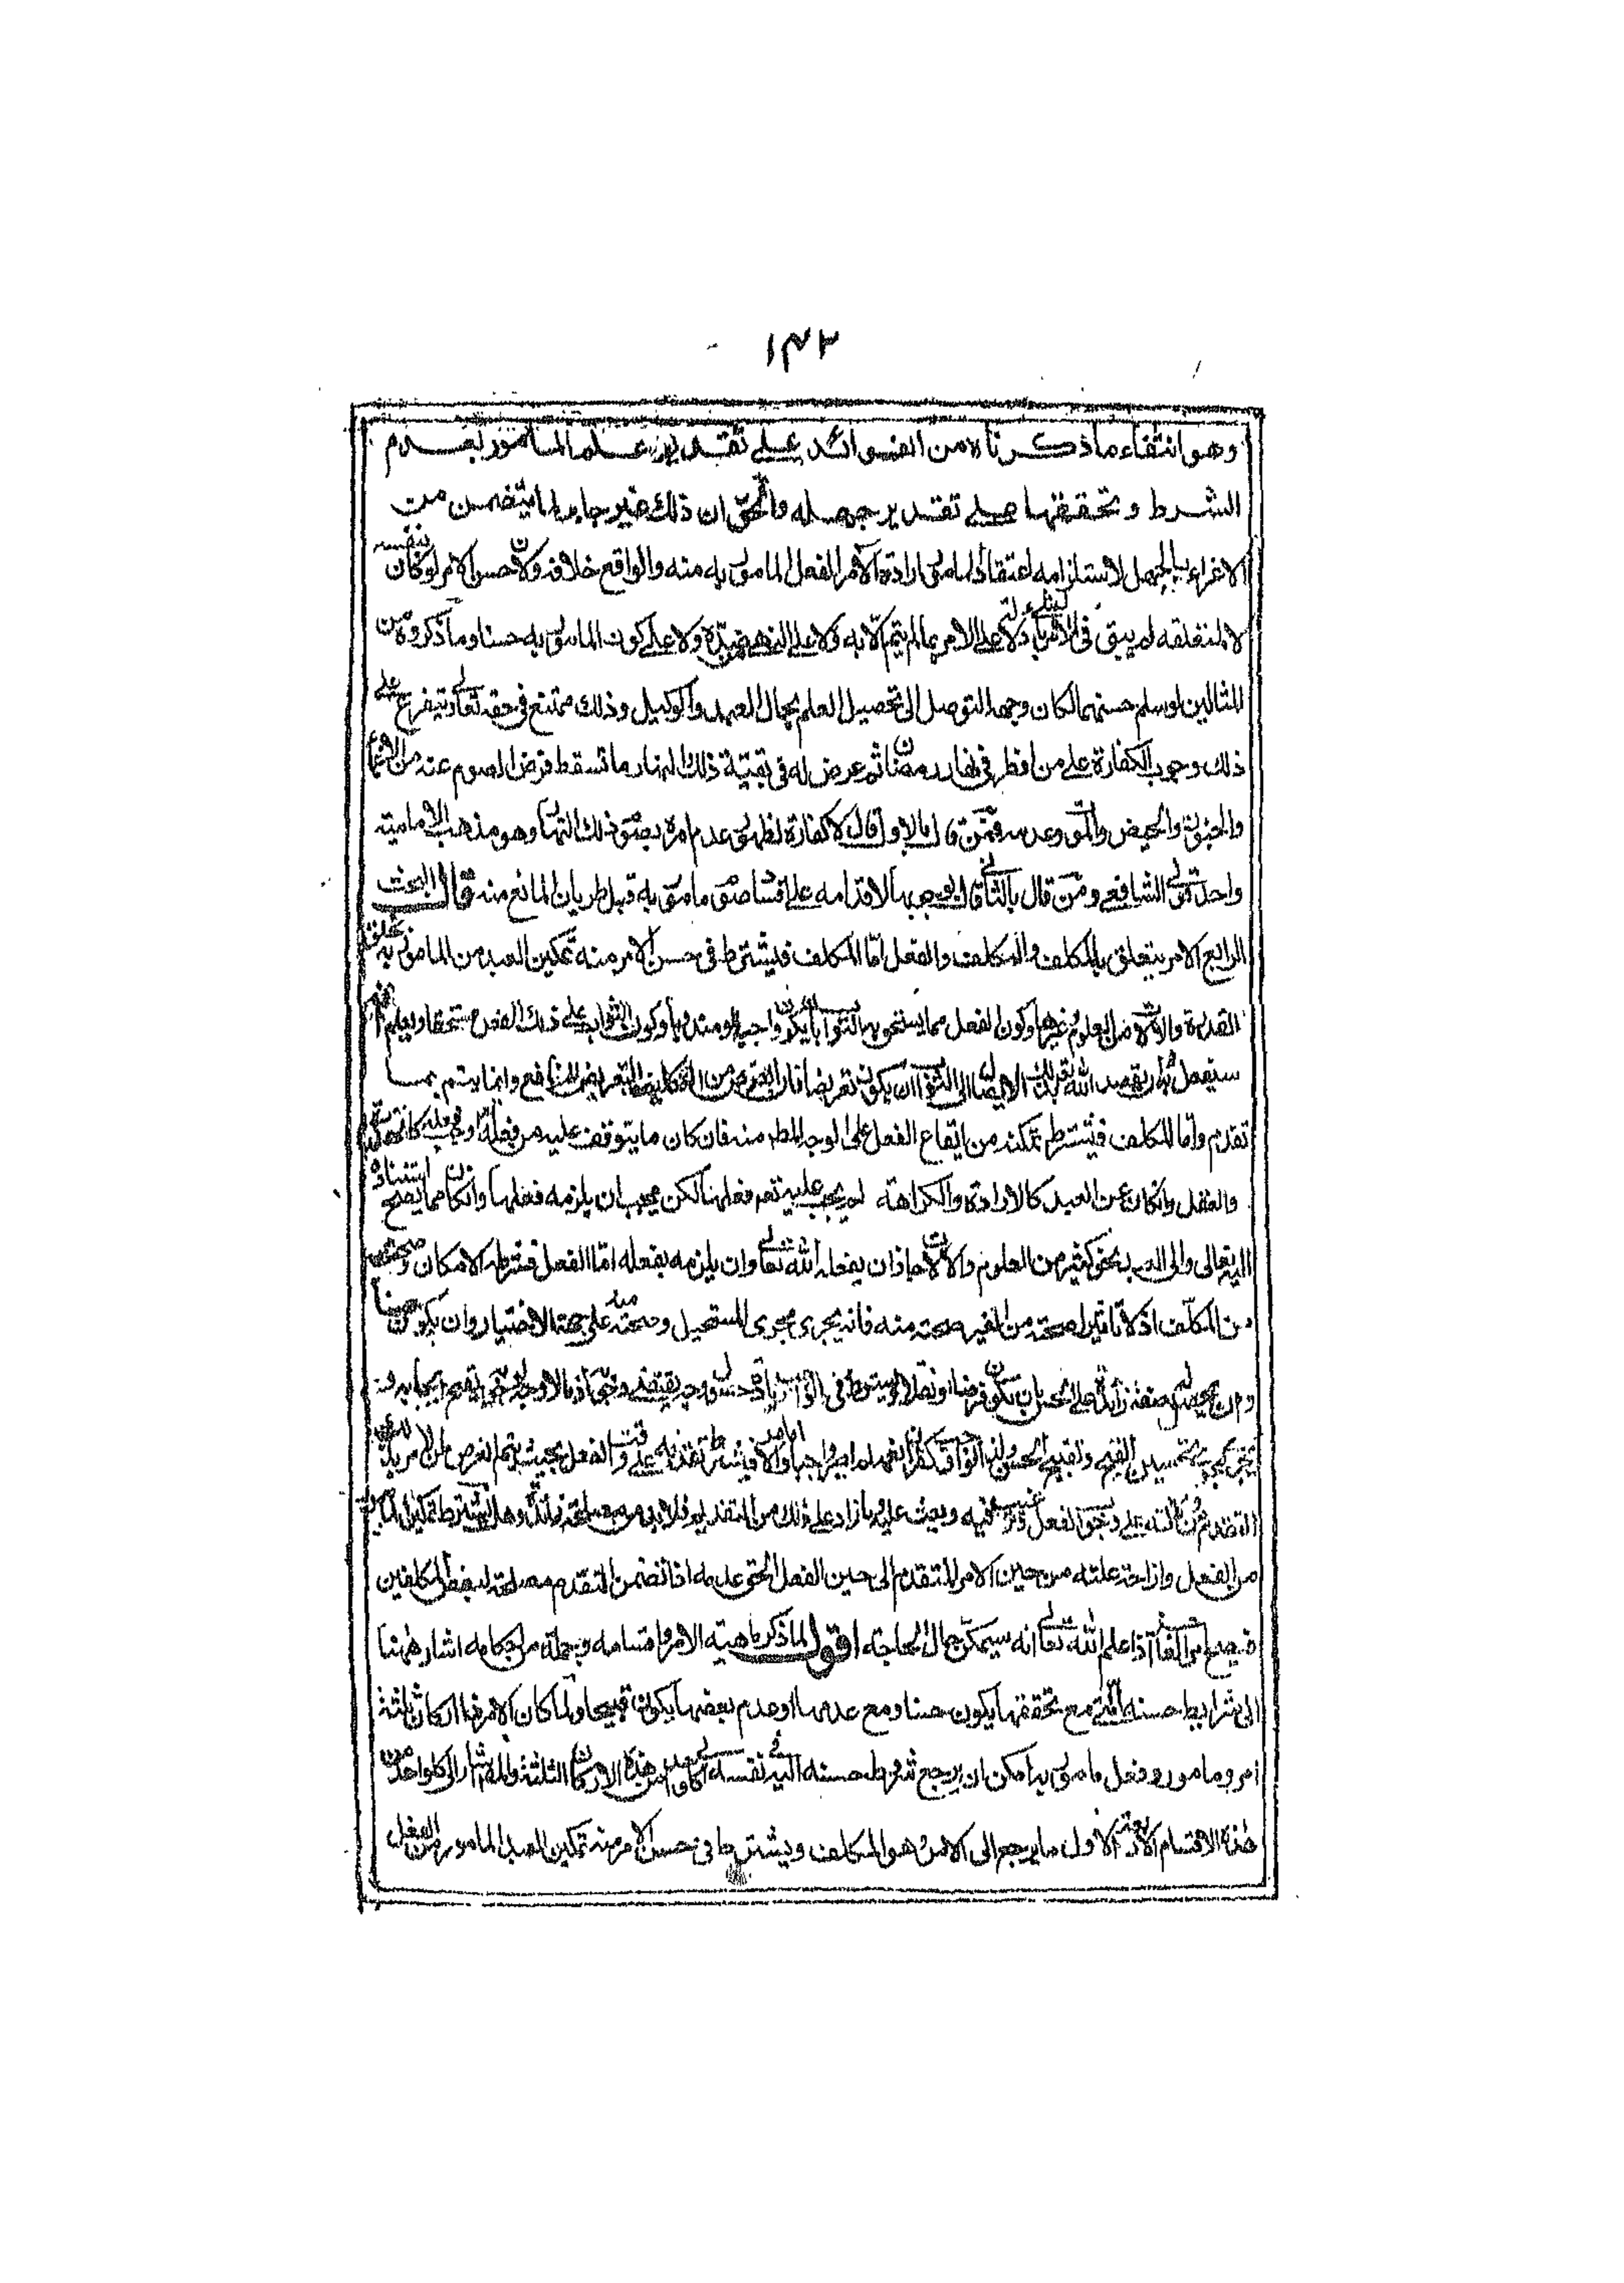 ١٤٢
وهو انتفاء ما ذكرناه من الفوائد على تقدير علم المأمور بعدم
الشرط و تحققها على تقدير جهله والحق ان ذلك غير جايز لما يتضمن من
الاغراء بالجهل لاستلزامه اعتقاد المامور ارادة الآمر الفعل المامور به منه والواقع خلافه ولان حسن الامر لو كان لنفسه
لا لمتعلقه لم يبق في الامر دلالة على الامر بما لم يتم الا به ولا على النهي عن ضده ولا على كون المامور به حسنا وما ذكروه من
المثالين لو سلم حسنهما لكان وجهه التوصل الى تحصيل العلم بحال العبد والوكيل وذلك ممتنع في حقه تعالى ويتفرع على
ذلك وجوب الكفارة على من افطر في نهار رمضان ثم عرض له في بقية ذلك النهار ما تسقط فرض الصوم عنه من الاغما
والجنون والحيض والموت وعدمه فمن قال بالاول قال لا كفارة لظهور عدم امره بصوم ذلك النهار وهو مذهب الامامية
واحد قولي الشافعي ومن قال بالثاني قال بوجوبها لاقدامه على افساد صوم مامور به قبل طريان المانع منه قال البحث
الرابع الامر يتعلق بالمكلف والمكلف والفعل اما المكلف فيشترط في حسن الامر منه تمكين العبد من المامور به بخلق
القدرة والالات والعلوم وغيرها وكون الفعل مما يستحق به الثواب بان يكون واجبا او مندوبا وكون الثواب على ذلك الفعل مستحقا ويعلم انه
سيفعل به وان يقصد الله بذلك الايصال الى الثواب ان يكون تعريضا اذ الغرض من التكليف التعريض للمنافع وانما يتم بما
تقدم واما المكلف فيشترط تمكنه من ايقاع الفعل على الوجه المطلوب منه فان كان ما يتوقف عليه من فعله تعالى وجب فعله كالقدرة
والعقل وان كان من العبد كالارادة والكراهة لم يجب عليه تعالى فعلها لكن يجب ان يلزمه فعلها وان كان مما يصح استناده
اليه تعالى والى العبد نحو كثير من العلوم والالات جاز ان يفعله الله تعالى وان يلزمه بفعله اما الفعل فشرطه الامكان وصحته
من المكلف اذ لا تاثير لصحته من الغير صحته منه فانه يجري مجرى المستحيل وصحته منه على جهة الاختيار وان يكون حسنا
وان يحصل له صفة زائدة على الحسن بان يكون فرضا او نفلا ويشترط في الواجب زيادة حسن وجه يقتضي وجوبه اذ ما لا وجه له يقبح ايجابه فانه
يجري مجرى تحسين القبيح وتقبيح الحسن
التقدم على وجوب الفعل وترغيبه فيه وبعث عليه وما زاد على ذلك من التقدير فلا بد من مصلحة زائدة وهل يشترط تمكين المكلف
من الفعل وازاحة علته من حين الامر المتقدم الى حين الفعل الحق عدمه اذا تضمن التقدم مصلحة لبعض المكلفين
فيصح امر العاجز اذا علم الله تعالى انه سيمكن حال الحاجة اقول لما ذكر ماهية الامر واقسامه وجملة من احكامه اشار ههنا
الى شرايط حسنه التي مع تحققها يكون حسنا ومع عدمها او عدم بعضها يكون قبيحا ولما كان الامر له اركان ثلثة
امر ومامور وفعل مامور به امكن ان يرجع شروط حسنه اليه نفسه والى كل واحد من هذه الاركان الثلثة والمص اشار الى كل واحد من
هذه الاقسام الاربعة الاول ما يرجع الى الامر وهو المكلف ويشترط في حسن الامر منه تمكين العبد المامور من الفعل